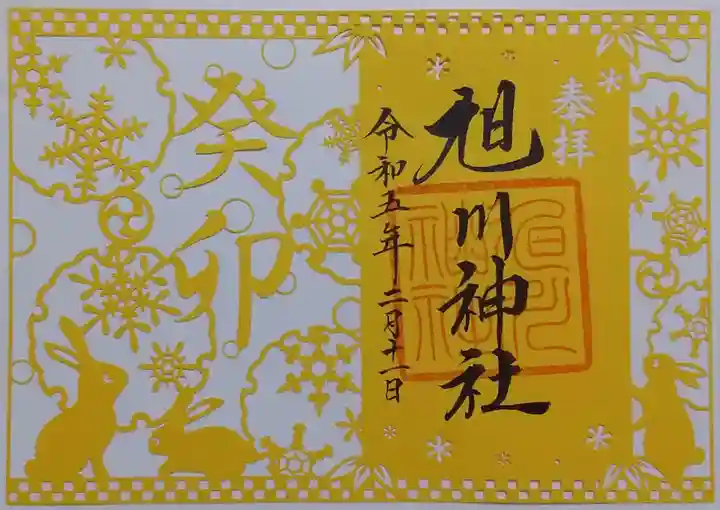 奉拝
旭川神社
令和五年二月十一日
癸卯